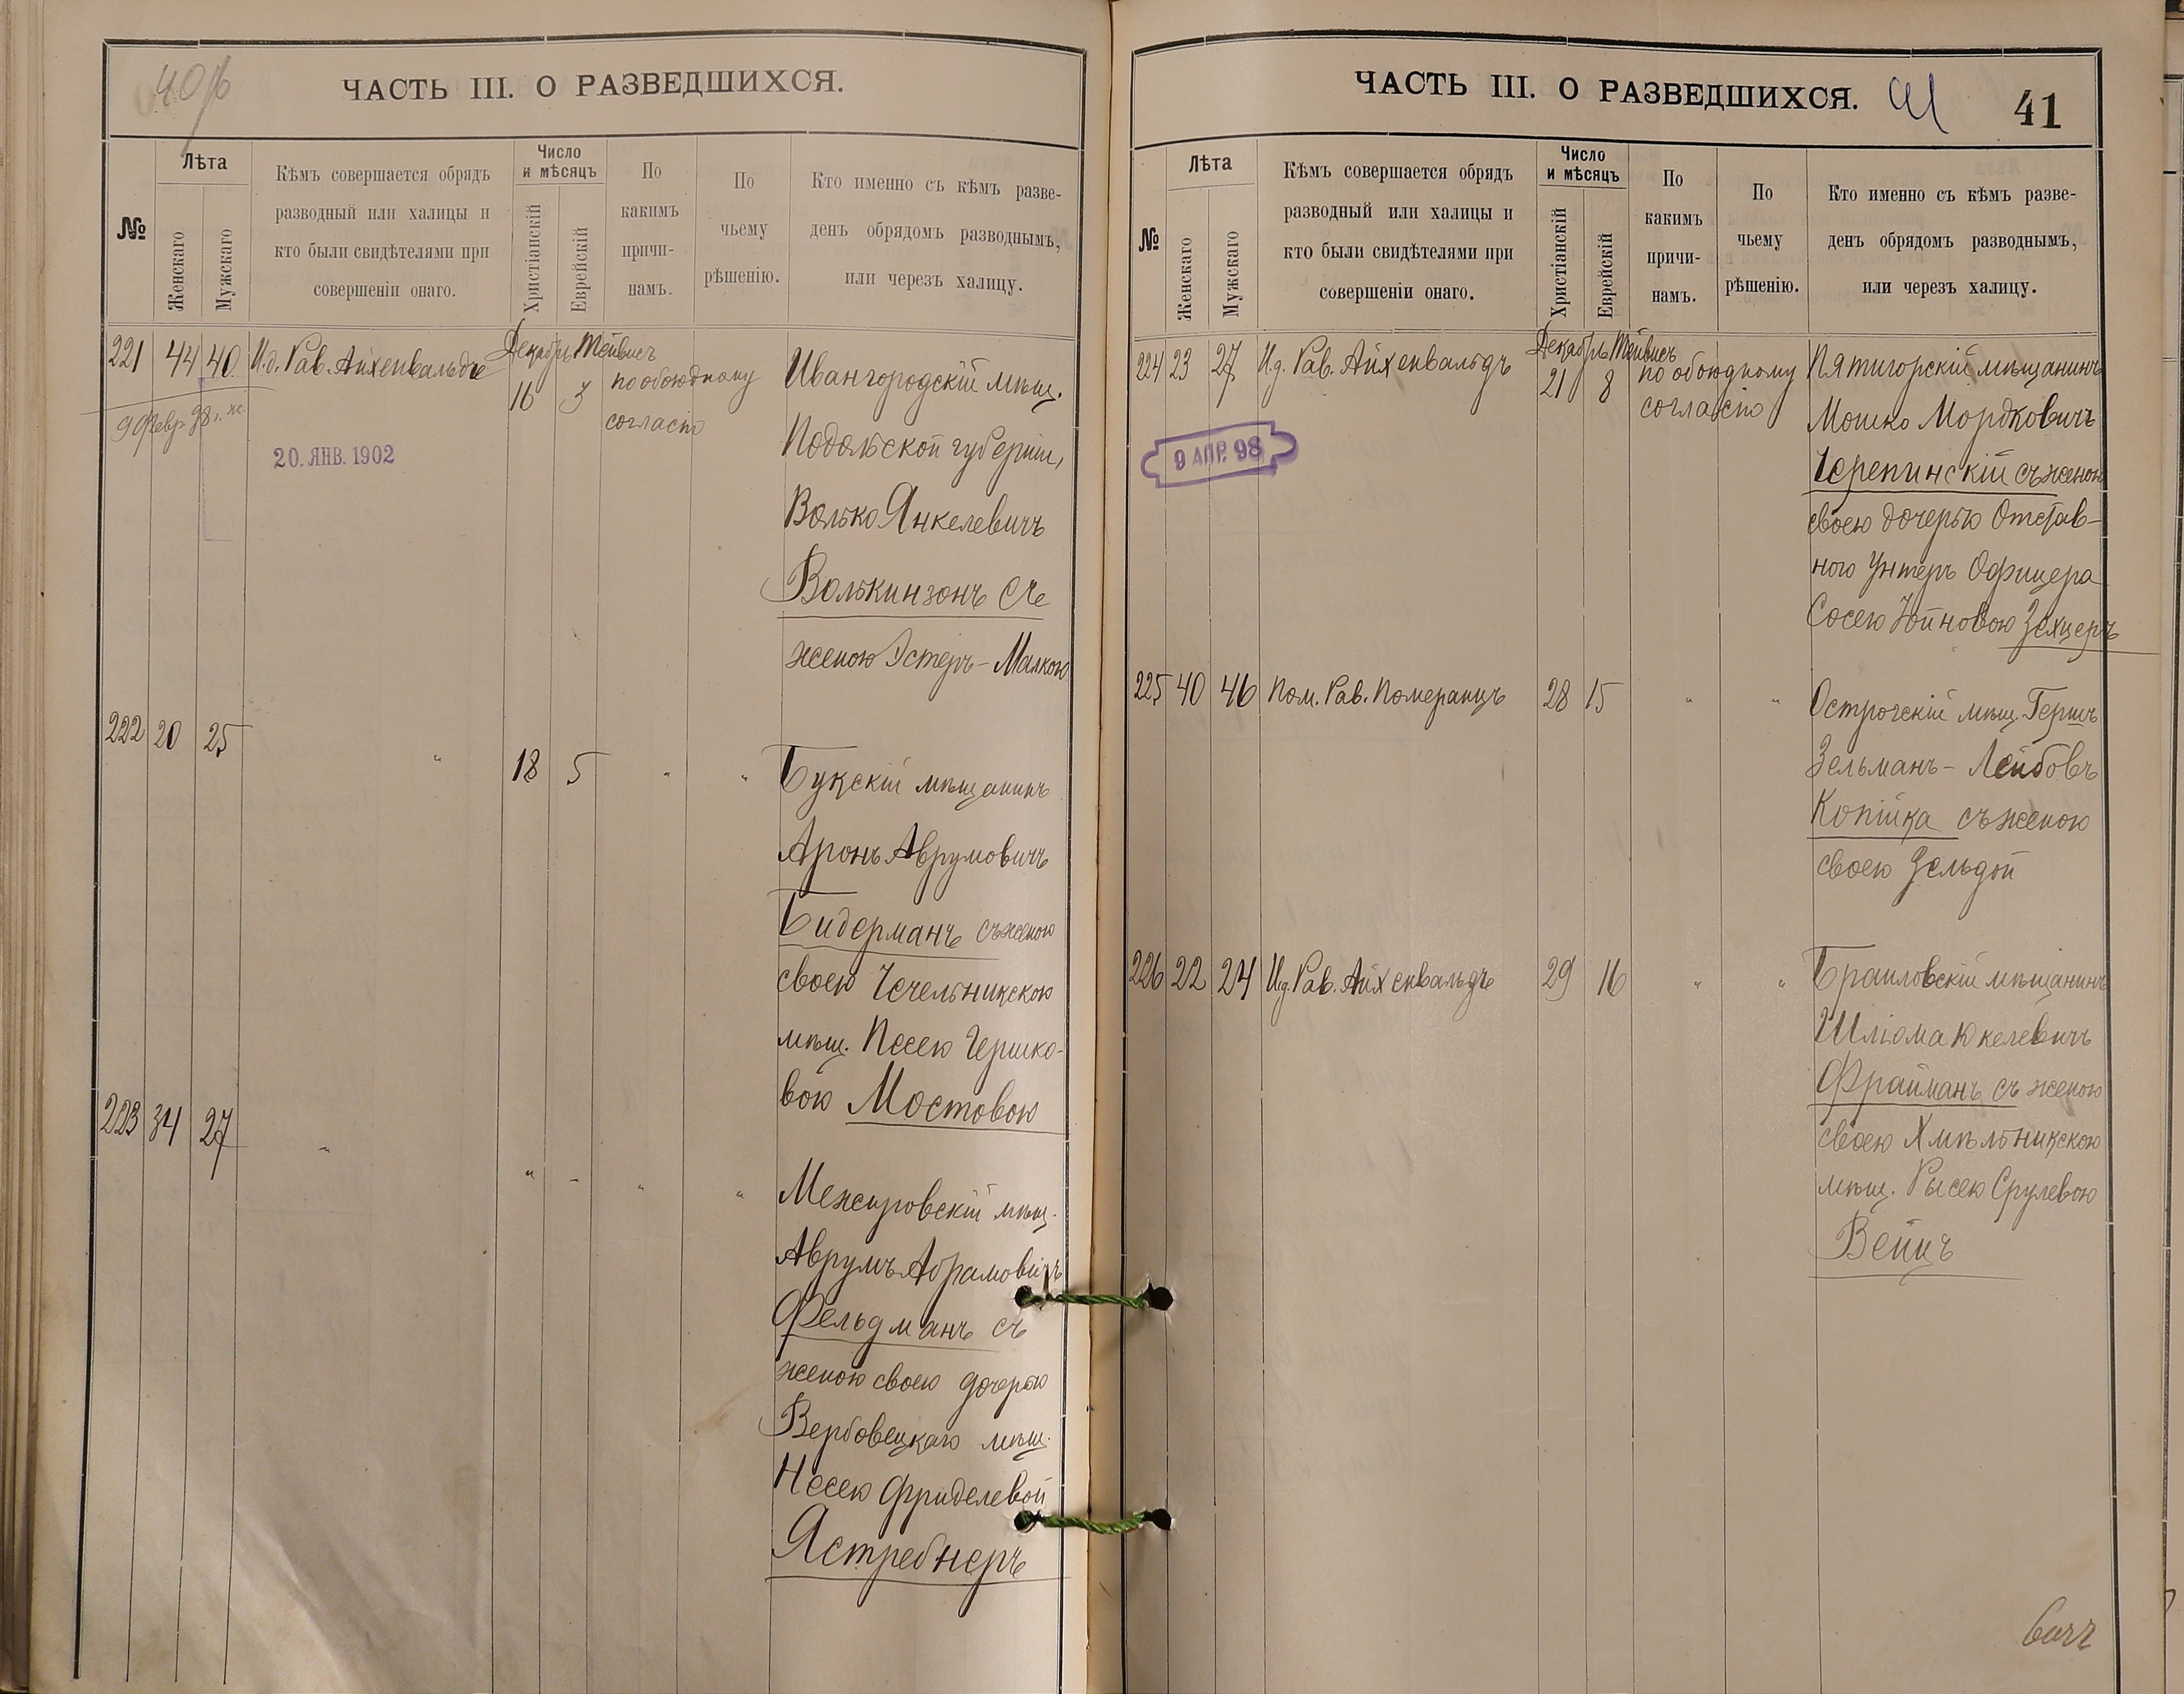 40/б
ЧАСТЬ III. О РАЗВЕДШИХСЯ.
№
Лѣта
Женскаго
Мужскаго
Кѣмъ совершается обрядъ
разводный или халицы и
кто были свидѣтелями при
совершеніи онаго.
Число
и мѣсяцъ
Христіанскій
Еврейскій
По
какимъ
причи-
намъ.
По
чьему
рѣшенію.
Кто именно съ кѣмъ разве-
денъ обрядомъ разводнымъ,
или черезъ халицу.
221 44 40 И.д. Рав. Айхенвальдъ
Декабрь Тейвисъ
16 3
по обоюдному
согласію
9 Февр 98 г.
20. ЯНВ. 1902
Ивангородскій мѣщ.
Подольской губерніи,
Волько Янкелевичъ
Волькинзонъ съ
женою Эстеръ-Малкою
222 20 25 " 18 5 " "
Букскій мѣщанинъ
Аронъ Аврумовичъ
Бидерманъ съ женою
своею Чечельникскою
мѣщ. Песею Гершко-
вою Мостовою
223 34 27 " " " " "
Межировскій мѣщ.
Аврумъ Абрамовичъ
Фельдманъ съ
женою своею дочерью
Вербовецкаго мѣщ.
Несею Фриделевой
Ястребнеръ
ЧАСТЬ III. О РАЗВЕДШИХСЯ.
41
41
№
Лѣта
Женскаго
Мужскаго
Кѣмъ совершается обрядъ
разводный или халицы и
кто были свидѣтелями при
совершеніи онаго.
Число
и мѣсяцъ
Христіанскій
Еврейскій
По
какимъ
причи-
намъ.
По
чьему
рѣшенію.
Кто именно съ кѣмъ разве-
денъ обрядомъ разводнымъ,
или черезъ халицу.
224 23 27 И.д. Рав. Айхенвальдъ
Декабрь Тейвисъ
21 8
по обоюдному
согласію
9 АПР. 98
Пятигорскій мѣщанинъ
Мошко Мордковичъ
Черепинскій съ женою
своею дочерью Отстав-
ного Унтеръ Офицера
Сосею Зехцеръ
225 40 46 Пом. Рав. Померанцъ 28 15 " "
Острогскій мѣщ. Гершъ
Зельманъ-Лейбовъ
Копійка съ женою
своею Зельдой
226 22 24 И.д. Рав. Айхенвальдъ 29 16 " "
Браиловскій мѣщанинъ
Шліома Юкелевичъ
Фрайманъ съ женою
своею Хмѣльникскою
мѣщ. Рысею Срулевою
Вейцъ